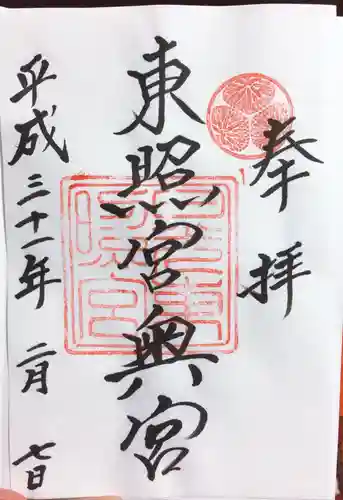 奉拝
東照宮奥宮
平成三十一年二月七日